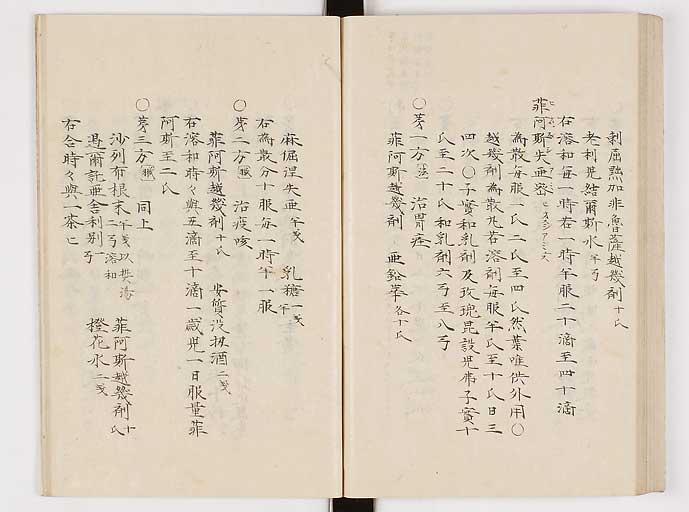 剌屈謁加非魯薩越幾剤 十氏
老利児結爾斯水 半弓
右溶和毎一時若一時半服二十滴至四十滴
菲阿斯失亜密 ヒヨスシアミュス
為散毎服一氏二氏至四氏然葉唯供外用〇
越幾剤為散丸若溶剤毎服半氏至十氏日三
四次〇子實和乳剤及玫瑰昆設児弗子實十
氏至二十氏和乳剤六弓至八弓
〇第一方 治胃痙
菲阿斯越幾剤 亜鉛華 各十氏
麻屈涅失亜 半戔 乳糖 一戔半
右為散分十服毎一時半一服
〇第二方 治疫咳
菲阿斯越幾剤 十氏 安質没扭酒 二戔
右溶和時々與五滴至十滴一歳児一日服量菲
阿斯至二氏
〇第三方 同上
沙列布根末 半戔以熱湯二弓溶和 菲阿斯越幾剤 十氏
遏爾託亜舎利別 一弓 橙花水 二戔
右合時々與一茶匕